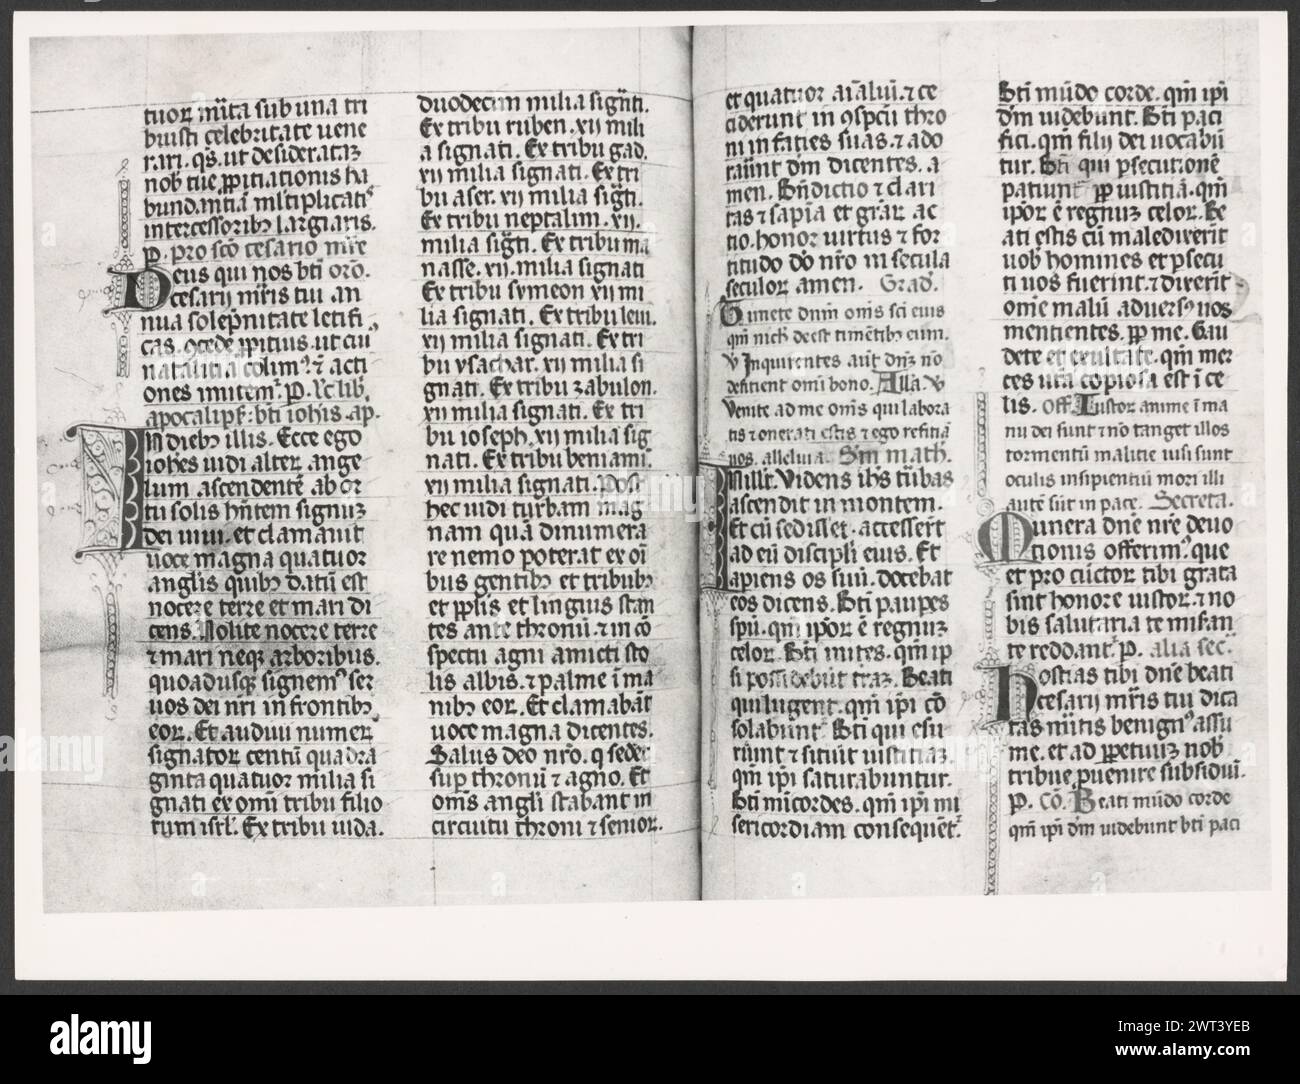 tuor mīta sub una tri
buisti celebritate uene
rari. qs. ut desideratā
nob tue ppitiationis ha
bundantiā mltiplicatis
intercessorib largiaris.
P. pro sco cesario mre
Deus qui nos bti oro.
cesarij mris tui an
nua solepnitate letifi
cas. ocede ppitius. ut cui
natalitia colim et acti
ones imitem. P. lc lib.
apocalips. bti iohis ap.
In dieb illis. Ecce ego
iohes uidi alter ange
lum ascendentē ab or
tu solis hntem signuz
dei uiui. et clamauit
uoce magna quatuor
anglis quib datū est
nocere terre et mari di
cens. Nolite nocere terre
⁊ mari neqz arboribus.
quoadusqz signem ser
uos dei nri in frontib
eor. Et audiui numer
signator centū quadra
ginta quatuor milia si
gnati ex omi tribu filio
rum isrl. Ex tribu iuda.
duodecim milia signti.
Ex tribu ruben. xij mili
a signati. Ex tribu gad.
xij milia signati. Ex tri
bu aser. xij milia signti.
Ex tribu neptalim. xij.
milia signti. Ex tribu ma
nasse. xij. milia signati
Ex tribu symeon xij mi
lia signati. Ex tribu leui.
xij milia signati. Ex tri
bu ysachar. xij milia si
gnati. Ex tribu zabulon.
xij milia signati. Ex tri
bu ioseph. xij milia sig
nati. Ex tribu beniamī.
xij milia signati. Post
hec uidi turbam mag
nam quā dinumera
re nemo poterat ex oī
bus gentib et tribub
et pplis et linguis stan
tes ante thronū. ⁊ in cō
spectu agni amicti sto
lis albis. ⁊ palme ī ma
nib eor. Et clamabāt
uoce magna dicentes.
Salus deo nro. q seder
sup thronū ⁊ agno. Et
oms angli stabant in
circuitu throni ⁊ senior.
et quatuor aīaliū. ⁊ ce
ciderunt in ospcū thro
ni in faties suas. ⁊ ado
rauīnt dm dicentes. a
men. Bndictio ⁊ clari
tas ⁊ sapīa et grar ac
tio. honor uirtus ⁊ for
titudo do nro in secula
seculor amen. Grad.
Timete dnm oms sci eius
qm nich deest timētib eum.
V Inquirentes aut dnz nō
defitient omi bono. Alla. V
Venite ad me oms qui labora
tis ⁊ onerati estis ⁊ ego refitiā
uos. alleluia. Sm math.
In illr. Videns ihs tūbas
ascendit in montem.
Et cū sedisset. accessert
ad eū discipli eius. Et
apiens os suū. docebat
eos dicens. Bti paupes
spū. qm ipor ē regnuz
celor. Bti mites. qm ip
si possidebūt traz. Beati
qui lugent. qm ipi cō
solabunt. Bti qui esu
riūnt ⁊ sitiūt iustitiaz.
qm ipi saturabuntur.
Bti micordes. qm ipi mi
sericordiam consequēt.
Bti mūdo corde. qm ipi
dm uidebunt. Bti paci
fici. qm filij dei uocabū
tur. Bti qui psecutionē
patiunt pp iustitiā. qm
ipor ē regnuz celor. Be
ati estis cū maledixerīt
uob homines et psecu
ti uos fuerint. ⁊ dixerīt
omē malū aduers uos
mentientes. pp me. Gau
dete et exultate. qm mer
ces ura copiosa est ī ce
lis. Off. Iustor anime ī ma
nu dei sunt ⁊ nō tanget illos
tormentū malitie uisi sunt
oculis insipientiū mori illi
autē sūt in pace. Secreta.
Munera dne nre deuo
tionis offerim. que
et pro cūctor tibi grata
sint honore iustor. ⁊ no
bis salutaria te miseran
te reddant. P. alia sec.
Hostias tibi dne beati
cesarij mris tui dica
tas mitis benign assu
me. et ad ppetuuz nob
tribue puenire subsidiū.
P. Cō. Beati mūdo corde
qm ipi dm uidebunt bti paci
alamy
Image ID: 2WT3YEB
www.alamy.com